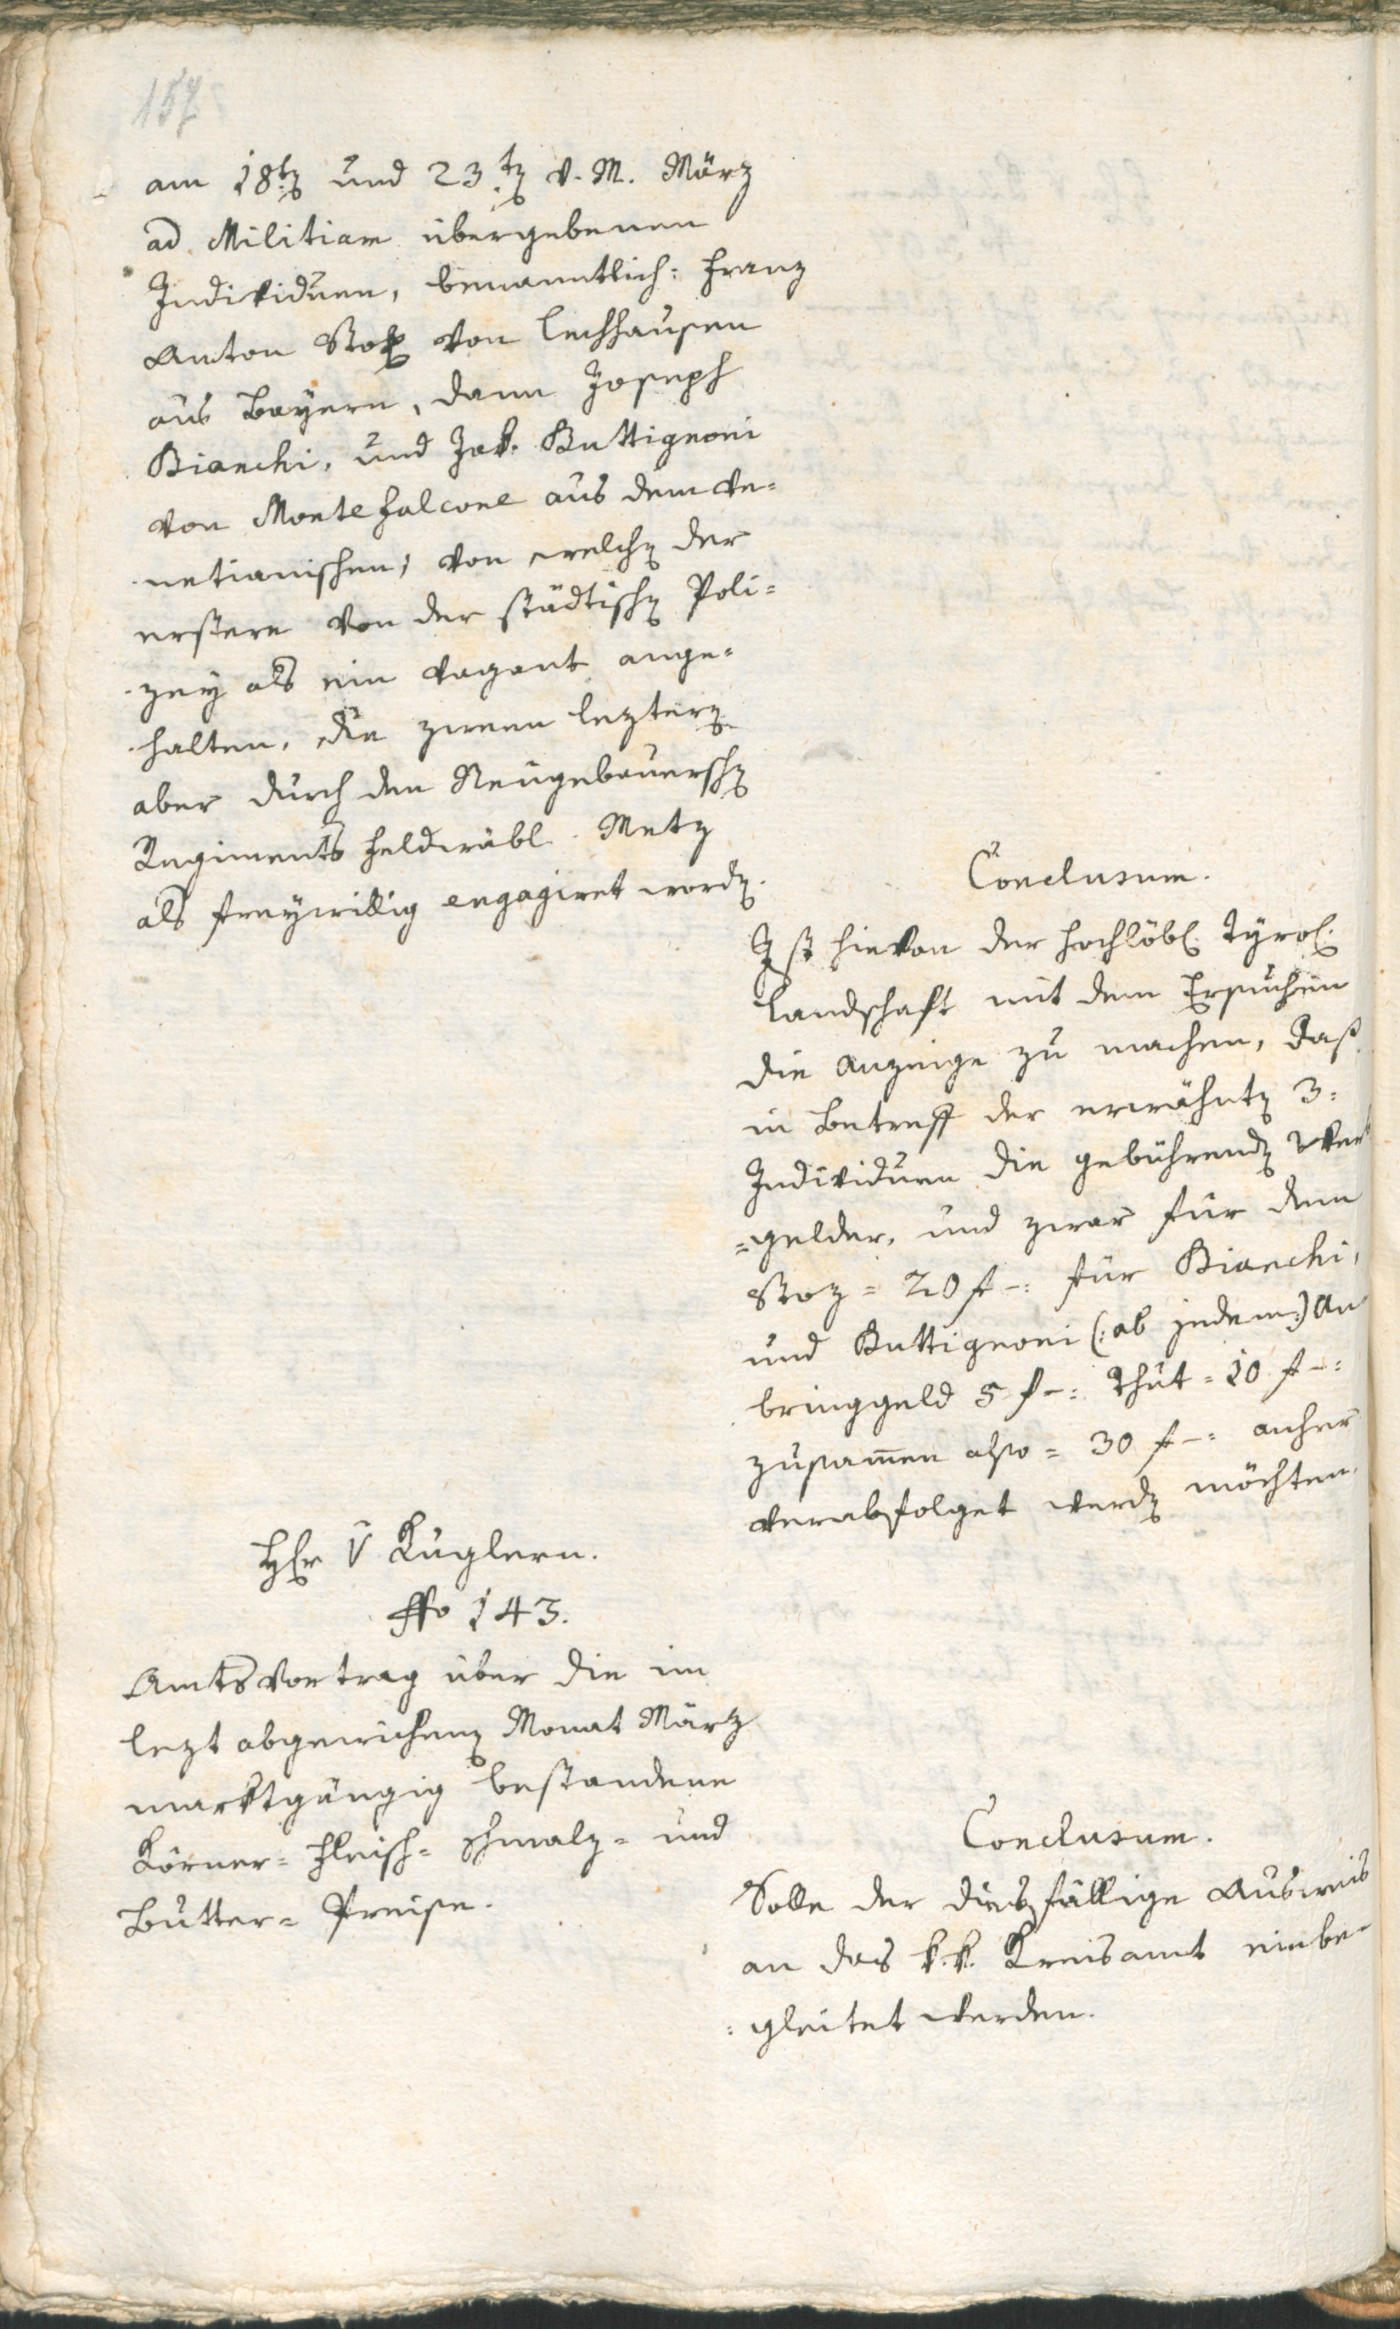 157
am 18t: und 23t: v. M. März
ad Militiam übergebenen
Individuen, benanntlich: Franz
Anton Stoz von Lechhausen
aus Bayern, dann Joseph
Bianchi, und Jak. Buttignoni
von Montefalcone aus dem Ve=
netianischen, von welchen der
erstere von der städtischen Poli=
zey als ein Vagant ange=
halten, die zween leztern
aber durch den Neugebauerschen
Regiments Feldwäbl Metz
als freywillig engagiret worden.
Conclusum.
Ist hievon der hochlöbl. Tyrol.
Landschaft mit dem Ersuchen
die Anzeige zu machen, daß
in Betreff der erwähnten 3:
Individuen die gebührenden Werb
=gelder, und zwar für dem
Stoz = 20 f –: für Bianchi,
und Buttignoni (: ab jedem :) An
bringgeld 5 f –: thut = 10 f –:
zusammen also = 30 f –: anher
verabfolget werden möchten.
Hr v Kuglern.
Fo 143.
Amtsvortrag über die im
lezt abgewichenen Monat März
marktgängig bestandene
Körner= Fleisch= Schmalz= und
Butter= Preise.
Conclusum.
Solle der diesfällige Ausweis
an das k. k. Kreisamt einbe=
=gleitet werden.